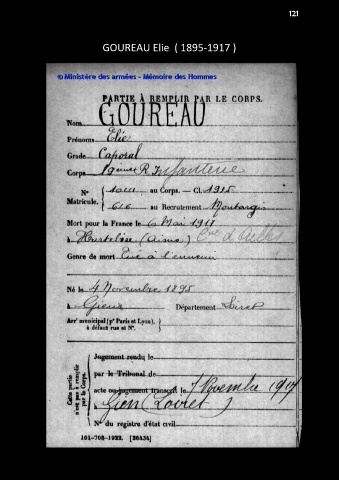 121
GOUREAU Elie ( 1895-1917 )
© Ministère des armées - Mémoire des Hommes
PARTIE À REMPLIR PAR LE CORPS.
Nom GOUREAU
Prénoms Elie
Grade Caporal
Corps R. Infanterie
N° au Corps. — Cl. 1915
Matricule. 616 au Recrutement Montargis
Mort pour la France le 6 Mai 1917
à Hurtebise (Aisne)
Genre de mort Tué à l'ennemi
Né le 4 Novembre 1895
à Gien Département Loiret
Arr' municipal (p' Paris et Lyon),
à défaut rue et N°.
Cette partie
n'est pas à remplir
par le Corps.
Jugement rendu le
par le Tribunal de
acte ou jugement transcrit le 7 Novembre 1917
à Gien (Loiret)
N° du registre d'état civil
101-708-1922. [26434]